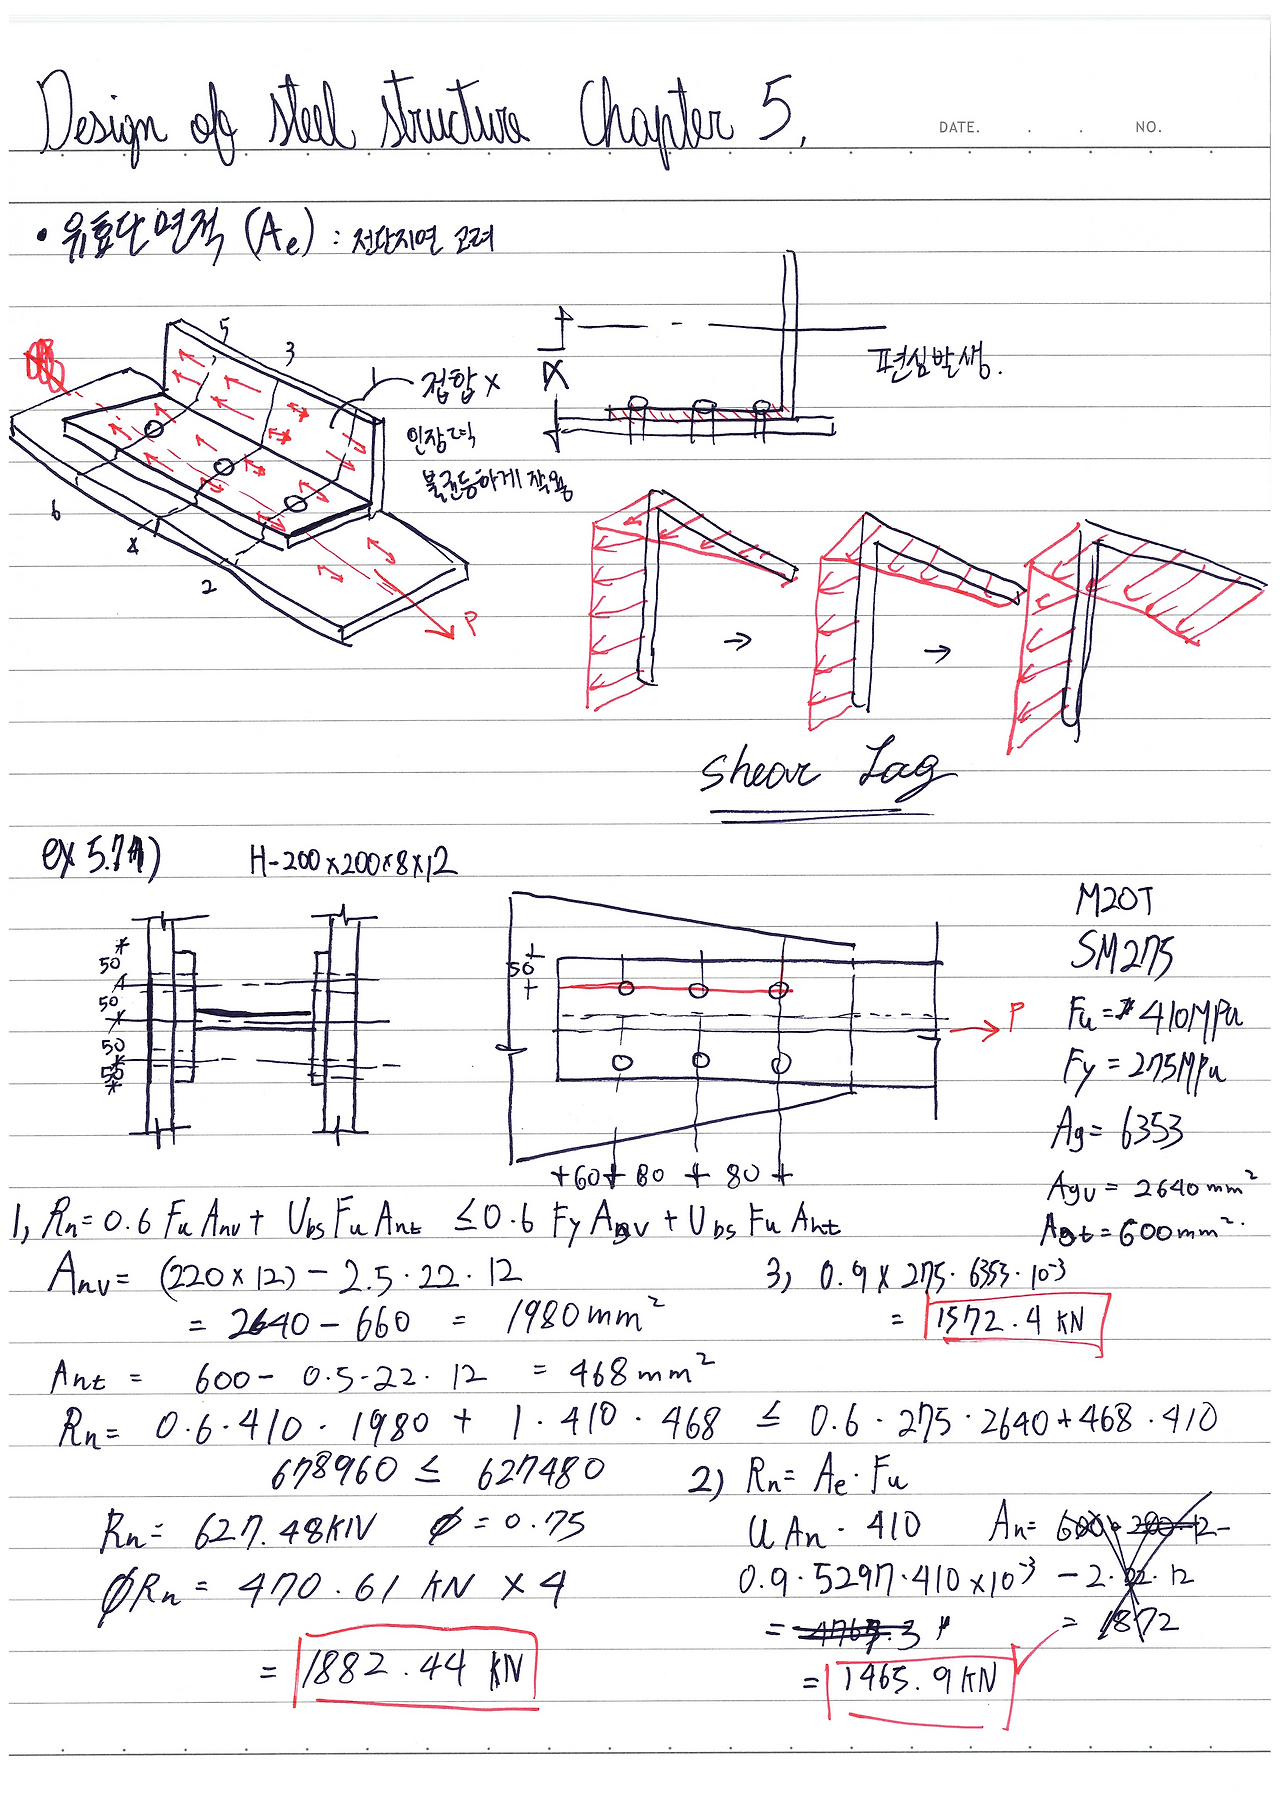 Design of steel structure Chapter 5.
DATE. . . NO.
• 유효단면적 (Ae) : 전단지연 고려
5
3
접합 x
인장력
불균등하게 작용
6
4
2
P
편심발생.
→
→
Shear Lag
ex 5.7)
H-200x200x8x12
50
50
50
50
50
P
+60+ 80 + 80 +
M20T
SM275
Fu = 410MPa
Fy = 275MPa
Ag = 6353
Agv = 2640mm²
Agt = 600mm².
1, Rn = 0.6 Fu Anv + Ubs Fu Ant ≤ 0.6 Fy Agv + Ubs Fu Ant
Anv = (220 x 12) - 2.5·22·12
= 2640 - 660 = 1980mm²
Ant = 600 - 0.5-22·12 = 468mm²
Rn = 0.6·410·1980 + 1·410·468 ≤ 0.6·275·2640+468·410
678960 ≤ 627480
Rn = 627.48KN ø = 0.75
øRn = 470.61 KN x 4
= 1882.44 KN
3) 0.9 x 275·6353·10⁻³
= 1572.4 KN
2) Rn = Ae·Fu
U An · 410
0.9·5297·410x10⁻³
= 4767.3
= 1465.9KN
An = 600 · 200·12-
- 2·22·12
= 1872